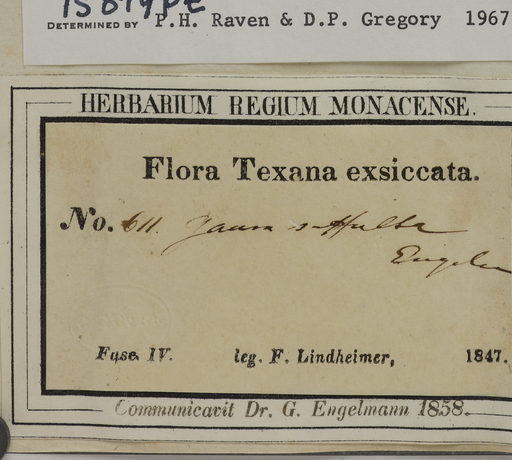 ISOTYPE
DETERMINED BY P.H. Raven & D.P. Gregory 1967
HERBARIUM REGIUM MONACENSE.
Flora Texana exsiccata.
No. 611. Gaura suffulta
Engelm
Fasc. IV. leg. F. Lindheimer, 1847.
Communicavit Dr. G. Engelmann 1858.